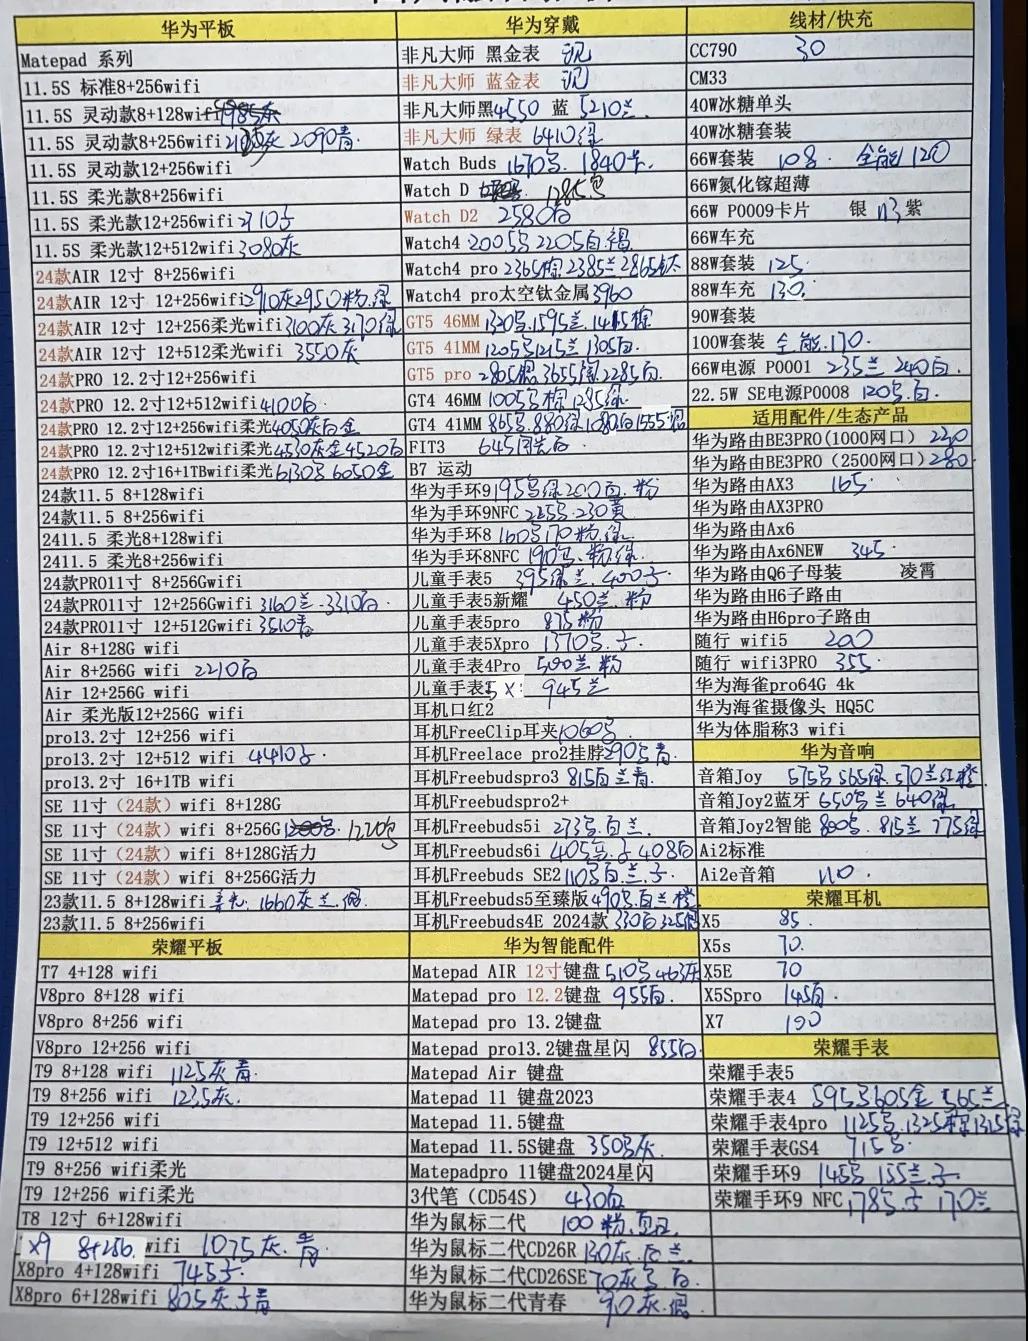 华为平板
Matepad 系列
11.5S 标准8+256wifi
11.5S 灵动款8+128wifi
11.5S 灵动款8+256wifi 灰 2090青
11.5S 灵动款12+256wifi
11.5S 柔光款8+256wifi
11.5S 柔光款12+256wifi
11.5S 柔光款12+512wifi 3080灰
24款AIR 12寸 8+256wifi
24款AIR 12寸 12+256wifi 2910灰2950粉.绿
24款AIR 12寸 12+256柔光wifi 3100灰 3170绿
24款AIR 12寸 12+512柔光wifi 3550灰
24款PRO 12.2寸12+256wifi
24款PRO 12.2寸12+512wifi 4100白
24款PRO 12.2寸12+256wifi柔光4050灰白金
24款PRO 12.2寸12+512wifi柔光4530灰金4520白
24款PRO 12.2寸16+1TBwifi柔光6130 6050金
24款11.5 8+128wifi
24款11.5 8+256wifi
2411.5 柔光8+128wifi
2411.5 柔光8+256wifi
24款PRO11寸 8+256Gwifi
24款PRO11寸 12+256Gwifi 3160兰.3310白.
24款PRO11寸 12+512Gwifi 3510青
Air 8+128G wifi
Air 8+256G wifi 2210白
Air 12+256G wifi
Air 柔光版12+256G wifi
pro13.2寸 12+256 wifi
pro13.2寸 12+512 wifi 4410
pro13.2寸 16+1TB wifi
SE 11寸（24款）wifi 8+128G
SE 11寸（24款）wifi 8+256G
SE 11寸（24款）wifi 8+128G活力
SE 11寸（24款）wifi 8+256G活力
23款11.5 8+128wifi 1660灰兰
23款11.5 8+256wifi
荣耀平板
T7 4+128 wifi
V8pro 8+128 wifi
V8pro 8+256 wifi
V8pro 12+256 wifi
T9 8+128 wifi 1125灰青.
T9 8+256 wifi 1235灰.
T9 12+256 wifi
T9 12+512 wifi
T9 8+256 wifi柔光
T9 12+256 wifi柔光
T8 12寸 6+128wifi
X9 8+256. wifi 1075灰.青
X8pro 4+128wifi 745
X8pro 6+128wifi 805灰 青
华为穿戴
非凡大师 黑金表 沉
非凡大师 蓝金表 沉
非凡大师黑4550 蓝 5210兰.
非凡大师 绿表 6410绿
Watch Buds 1670 1840卡.
Watch D
Watch D2 2580白
Watch4 2005 2205白.褐
Watch4 pro 2365棕 2385兰 2865钛
Watch4 pro太空钛金属3960
GT5 46MM 1595兰.棕
GT5 41MM 1205 1215兰 1305白
GT5 pro 2285白.
GT4 46MM 1005 棕1285绿
GT4 41MM 865. 880绿 1080白
FIT3
B7 运动
华为手环9195 绿200白.粉
华为手环9NFC 225.230黄
华为手环8 160 170粉.绿
华为手环8NFC 190 .粉绿.
儿童手表5 395绿兰.400
儿童手表5新耀 450兰.粉
儿童手表5pro 875粉
儿童手表5Xpro 1370
儿童手表4Pro 兰粉
儿童手表5X 945兰
耳机口红2
耳机FreeClip耳夹1060
耳机Freelace pro2挂脖290 青
耳机Freebudspro3 815白兰青.
耳机Freebudspro2+
耳机Freebuds5i 273 .白兰.
耳机Freebuds6i 405 408白
耳机Freebuds SE2 110 白兰.
耳机Freebuds5至臻版490 .白兰橙
耳机Freebuds4E 2024款 330白325
华为智能配件
Matepad AIR 12寸键盘 510 灰
Matepad pro 12.2键盘 955白.
Matepad pro 13.2键盘
Matepad pro13.2键盘星闪 855白
Matepad Air 键盘
Matepad 11 键盘2023
Matepad 11.5键盘
Matepad 11.5S键盘 350 灰.
Matepadpro 11键盘2024星闪
3代笔（CD54S）430白
华为鼠标二代 100粉.
华为鼠标二代CD26R 130灰.白兰.
华为鼠标二代CD26SE 70灰 白.
华为鼠标二代青春 90灰.
线材/快充
CC790 30
CM33
40W冰糖单头
40W冰糖套装
66W套装 全能120
66W氮化镓超薄
66W P0009卡片 银 113 紫
66W车充
88W套装 125.
88W车充 130.
90W套装
100W套装 全能.170.
66W电源 P0001 235兰 240白.
22.5W SE电源P0008 120 .白.
适用配件/生态产品
华为路由BE3PRO(1000网口) 230
华为路由BE3PRO(2500网口) 280
华为路由AX3 165.
华为路由AX3PRO
华为路由Ax6
华为路由Ax6NEW 345.
华为路由Q6子母装 凌霄
华为路由H6子路由
华为路由H6pro子路由
随行 wifi5 200
随行 wifi3PRO 355.
华为海雀pro64G 4k
华为海雀摄像头 HQ5C
华为体脂称3 wifi
华为音响
音箱Joy 575 565绿 570兰红橙
音箱Joy2蓝牙 650 兰 640绿
音箱Joy2智能 800 .815兰 775绿
Ai2标准
Ai2e音箱 110.
荣耀耳机
X5 85.
X5s 70.
X5E 70
X5Spro 145白.
X7 190
荣耀手表
荣耀手表5
荣耀手表4 595 605金 565兰
荣耀手表4pro 1125 .1325棕1315绿
荣耀手表GS4 715
荣耀手环9 145 155兰.
荣耀手环9 NFC 170兰